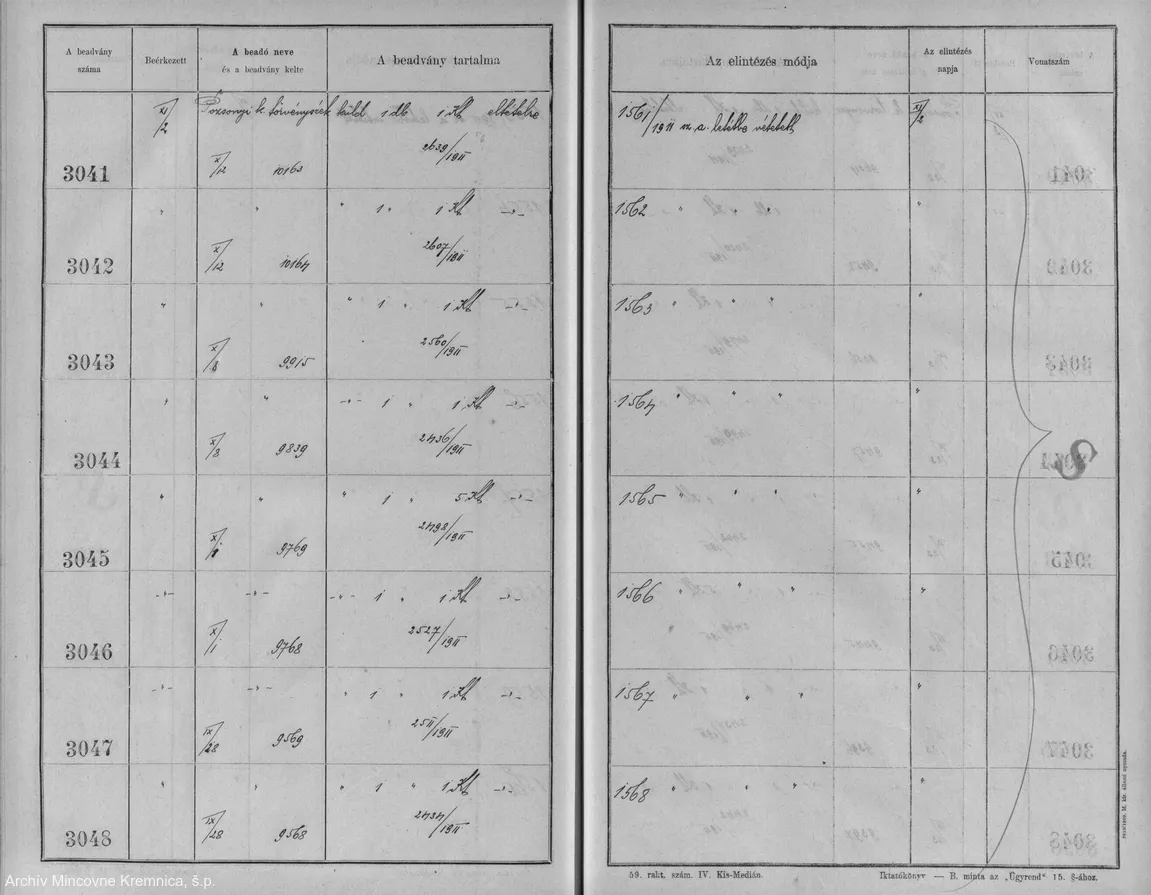 A beadvány száma
Beérkezett
A beadó neve és a beadvány kelte
A beadvány tartalma
Az elintézés módja
Az elintézés napja
Vonatszám
XI/2 Pozsonyi k. törvényszék küld 1 db 1 Kt eltételre 1561/1911 sz. a. letétbe vétetett XI/2
3041 X/12 10163 2639/1911
" " " 1 " 1 Kt -"- 1562 " " " "
3042 X/12 10164 2607/1911
" " " 1 " 1 Kt -"- 1563 " " " "
3043 X/8 9915 2560/1911
" " -"- 1 " 1 Kt -"- 1564 " " " "
3044 X/8 9839 2436/1911
" " " 1 " 5 Kt -"- 1565 " " " "
3045 9769 2498/1911
-"- -"- -"- 1 " 1 Kt -"- 1566 " " " "
3046 X/1 9768 2527/1911
-"- -"- " 1 " 1 Kt -"- 1567 " " " "
3047 IX/28 9569 2511/1911
" " " 1 " 1 Kt -"- 1568 " " " "
3048 IX/28 9568 2434/1911
59. rakt. szám. IV. Kis-Medián.
Iktatókönyv — B. minta az „Ügyrend" 15. §-ához.
M. kir. állami nyomda.
Archív Mincovne Kremnica, š.p.